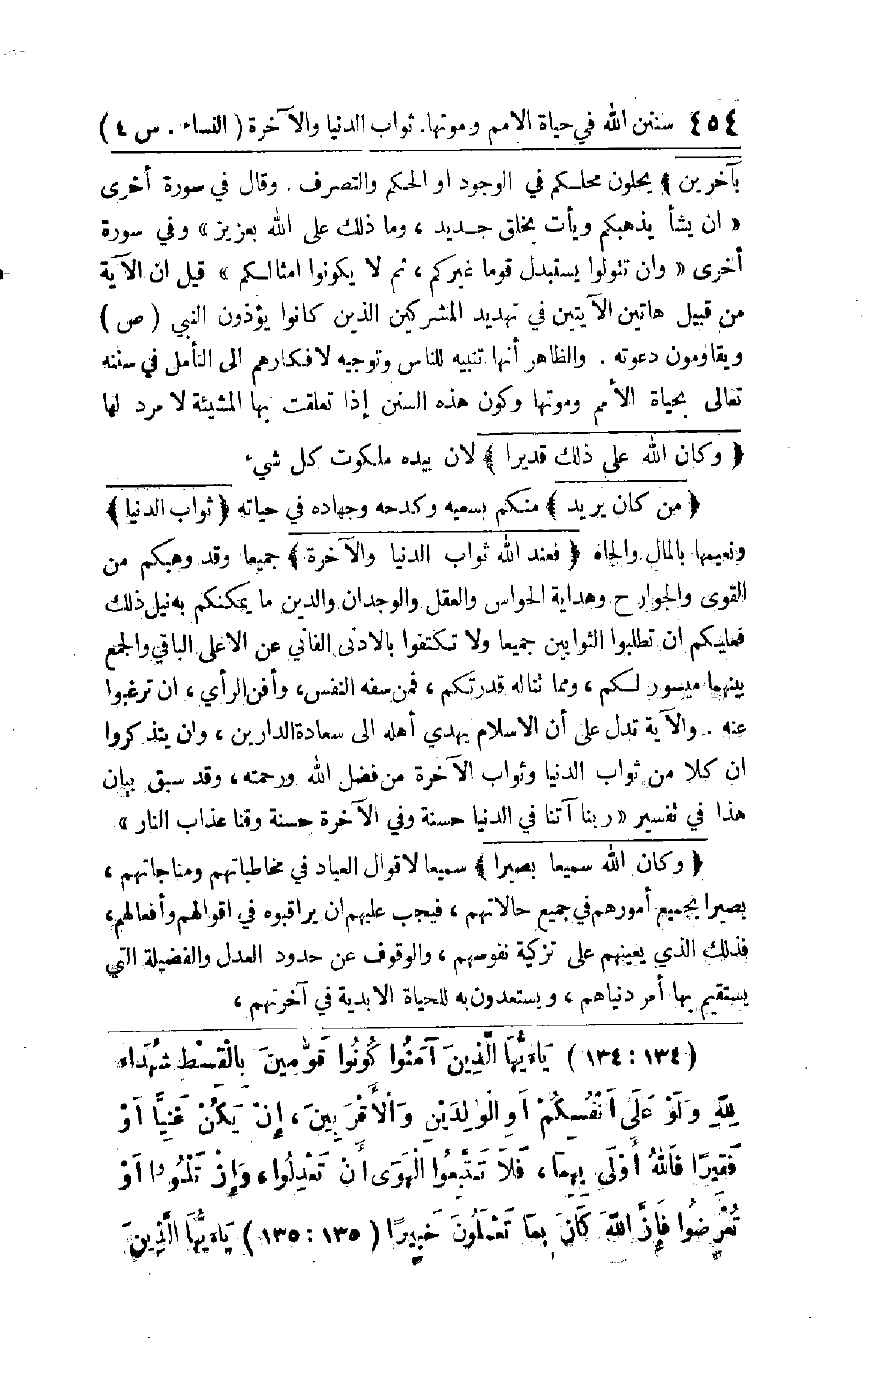 ٤٥٤ سنن الله في حياة الامم وموتها. ثواب الدنيا والآخرة ( النساء . س ٤ )
بآخرين ﴾ يحلون محلكم في الوجود او الحكم والتصرف . وقال في سورة أخرى
« ان يشأ يذهبكم ويأت بخلق جديد ، وما ذلك على الله بعزيز » وفي سورة
أخرى « وان تتولوا يستبدل قوما غيركم ، ثم لا يكونوا امثالكم » قيل ان الآية
من قبيل هاتين الآيتين في تهديد المشركين الذين كانوا يؤذون النبي ( ص )
ويقاومون دعوته . والظاهر أنها تنبيه للناس وتوجيه لافكارهم الى التأمل في سننه
تعالى بحياة الأمم وموتها وكون هذه السنن إذا تعلقت بها المشيئة لا مرد لها
﴿ وكان الله على ذلك قديرا ﴾ لان بيده ملكوت كل شيء
﴿ من كان يريد ﴾ منكم بسعيه وكدحه وجهاده في حياته ﴿ ثواب الدنيا ﴾
ونعيمها بالمال والجاه ﴿ فعند الله ثواب الدنيا والآخرة ﴾ جميعا وقد وهبكم من
القوى والجوارح وهداية الحواس والعقل والوجدان والدين ما يمكنكم به نيل ذلك
فعليكم ان تطلبوا الثوابين جميعا ولا تكتفوا بالادنى الفاني عن الاعلى الباقي والجمع
بينهما ميسور لكم ، ومما تناله قدرتكم ، فمن سفه النفس، وأفن الرأي ، ان ترغبوا
عنه . والآية تدل على أن الاسلام يهدي أهله الى سعادة الدارين ، وان يتذكروا
ان كلا من ثواب الدنيا وثواب الآخرة من فضل الله ورحمته ، وقد سبق بيان
هذا في تفسير « ربنا آتنا في الدنيا حسنة وفي الآخرة حسنة وقنا عذاب النار »
﴿ وكان الله سميعا بصيرا ﴾ سميعا لاقوال العباد في مخاطباتهم ومناجاتهم ،
بصيرا بجميع أمورهم في جميع حالاتهم ، فيجب عليهم ان يراقبوه في اقوالهم وأفعالهم،
فذلك الذي يعينهم على تزكية نفوسهم ، والوقوف عن حدود العدل والفضيلة التي
يستقيم بها أمر دنياهم ، ويستعدون به للحياة الابدية في آخرتهم ،
( ١٣٤ : ١٣٤ ) يَاءَيُّهَا الَّذِينَ آمَنُوا كُونُوا قَوَّمِينَ بِالْقِسْطِ شُهَدَاءَ
لِلَّهِ وَلَوْ عَلَى أَنْفُسِكُمْ أَوِ الْوَلِدَيْنِ وَالْأَقْرَبِينَ ، إِنْ يَكُنْ غَنِيًّا أَوْ
فَقِيرًا فَاللَّهُ أَوْلَى بِهِمَا ، فَلَا تَتَّبِعُوا الْهَوَى أَنْ تَعْدِلُوا ، وَإِنْ تَلْوُوا أَوْ
تُعْرِضُوا فَإِنَّ اللَّهَ كَانَ بِمَا تَعْمَلُونَ خَبِيرًا ( ١٣٥ : ١٣٥ ) يَاءَيُّهَا الَّذِينَ